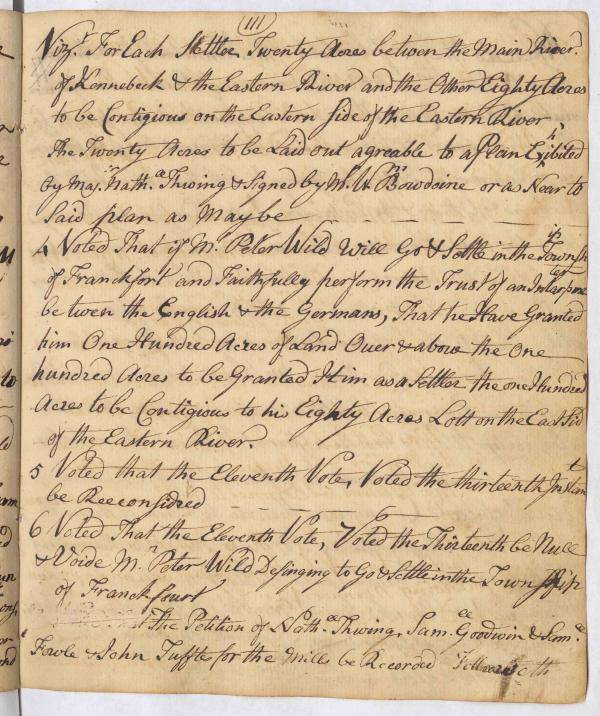 (111)
Vizt. For Each Settler Twenty Acres between the Main River
of Kennebeck & the Eastern River and the Other Eighty Acres
to be Contigious on the Eastern side of the Eastern River
The Twenty Acres to be Laid out agreable to a Plan Exhibited
by Maj. Nath.ll Thwing & Signed by Mr. Wm. Bowdoine or as Near to
Said plan as May be
4 Voted That if Mr. Peter Wild Will Go & Settle in the Township
of Franckfort and Faithfully perform the Trust of an Interpreter
between the English & the Germans, That he Have Granted
him One Hundred Acres of Land Over & above the One
hundred Acres to be Granted Him as a Settler the one Hundred
Acres to be Contigious to his Eighty Acres Lott on the East Sid
of the Eastern River.
5 Voted that the Eleventh Vote, Voted the thirteenth Instant
be Reeconsidred
6 Voted That the Eleventh Vote, Voted the Thirteenth be Null
& Voide Mr. Peter Wild Desinging to Go & Settle in the Township
of Franckfourt
The Petition of Nath.ll Thwing, Sam.ll Goodwin & Sam.ll
Fowle & John Tuffts for the Mills be Recorded